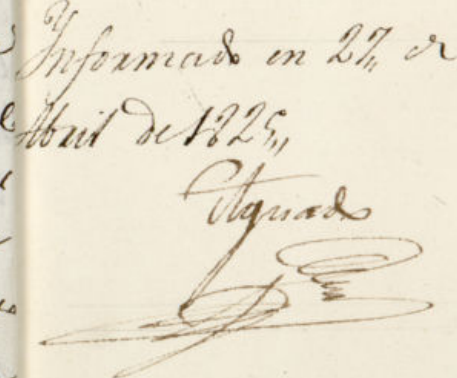 Informado en 27,, de
Abril de 1825,,
Aguado